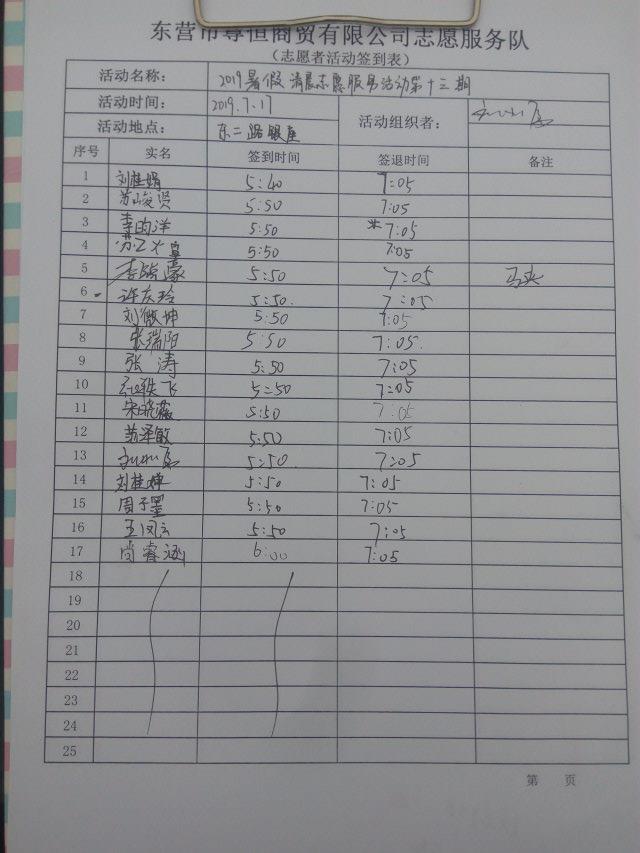 东营市尊恒商贸有限公司志愿服务队
（志愿者活动签到表）
活动名称： 2019暑假清晨志愿服务活动第十三期
活动时间： 2019.7.17
活动地点： 东二路银座 活动组织者：
序号 实名 签到时间 签退时间 备注
1 刘桂娟 5:40 7:05
2 苏峻贤 5:50 7:05
3 李昀洋 5:50 7:05
4 5:50 7:05
5 李瑞濛 5:50 7:05 马夹
6 许庆玲 5:50 7:05
7 刘傲坤 5:50 7:05
8 张瑞阳 5:50 7:05
9 张涛 5:50 7:05
10 5:50 7:05
11 宋晓薇 5:50 7:05
12 苏泽敏 5:50 7:05
13 5:50 7:05
14 刘桂婵 5:50 7:05
15 周子墨 5:50 7:05
16 王凤云 5:50 7:05
17 尚睿涵 6:00 7:05
18
19
20
21
22
23
24
25
第 页